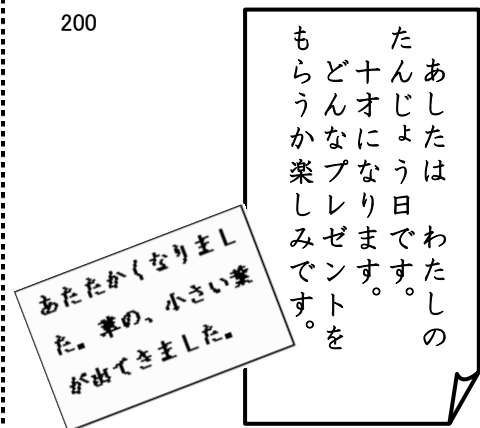 200
あしたは わたしの
たんじょう日です。
十才になります。
どんなプレゼントを
もらうか楽しみです。
あたたかくなりまし
た。草の、小さい葉
が出てきました。